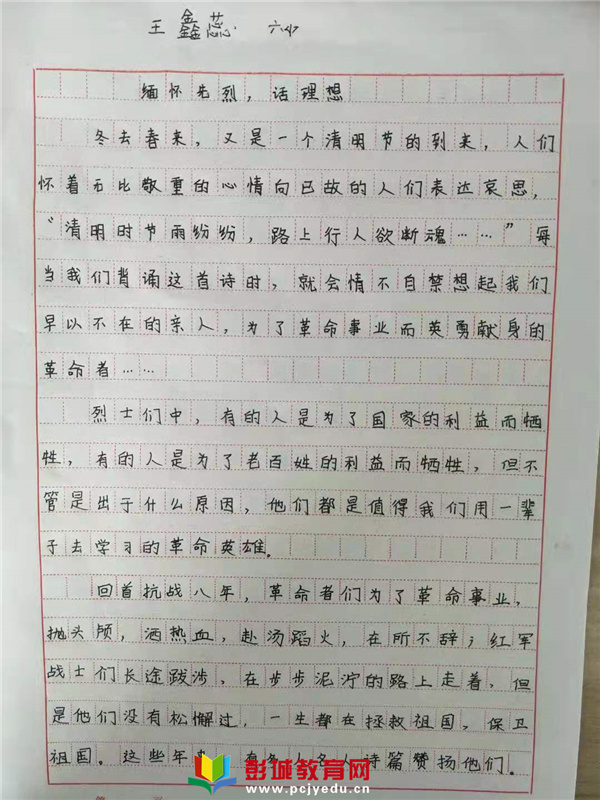 王 鑫蕊
缅怀先烈，话理想
冬去春来，又是一个清明节的到来，人们
怀着无比敬重的心情向已故的人们表达哀思，
“清明时节雨纷纷，路上行人欲断魂……”每
当我们背诵这首诗时，就会情不自禁想起我们
早以不在的亲人，为了革命事业而英勇献身的
革命者……
烈士们中，有的人是为了国家的利益而牺
牲，有的人是为了老百姓的利益而牺牲，但不
管是出于什么原因，他们都是值得我们用一辈
子去学习的革命英雄。
回首抗战八年，革命者们为了革命事业，
抛头颅，洒热血，赴汤蹈火，在所不辞；红军
战士们长途跋涉，在步步泥泞的路上走着，但
是他们没有松懈过，一生都在拯救祖国，保卫
祖国。这些年来，有名人诗篇赞扬他们。
彭城教育网
www.pcjyedu.cn